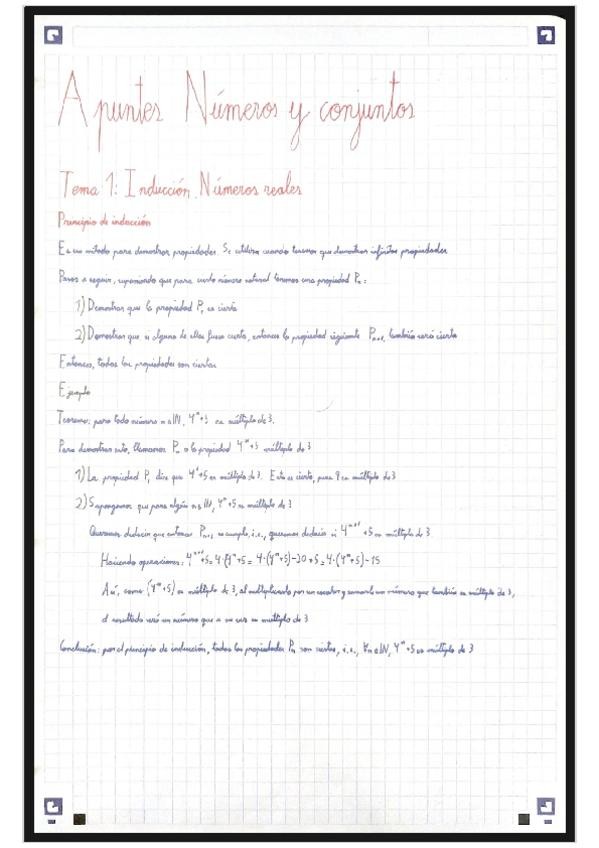 Apuntes Números y conjuntos
Tema 1: Inducción. Números reales
Principio de inducción
Es un método para demostrar propiedades. Se utiliza cuando tenemos que demostrar infinitas propiedades
Pasos a seguir, suponiendo que para cierto número natural tenemos una propiedad Pₙ:
1) Demostrar que la propiedad P₁ es cierta
2) Demostrar que si alguna de ellas fuese cierta, entonces la propiedad siguiente Pₙ₊₁, también será cierta
Entonces, todas las propiedades son ciertas
Ejemplo
Teorema: para todo número n∈ℕ, 4ⁿ+5 es múltiplo de 3.
Para demostrar esto, llamamos Pₙ a la propiedad 4ⁿ+5 múltiplo de 3
1) La propiedad P₁ dice que 4¹+5 es múltiplo de 3. Esto es cierto, pues 9 es múltiplo de 3
2) Supongamos que para algún n∈ℕ, 4ⁿ+5 es múltiplo de 3
Queremos deducir que entonces Pₙ₊₁ se cumple, i.e., queremos deducir si 4ⁿ⁺¹+5 es múltiplo de 3
Haciendo operaciones: 4ⁿ⁺¹+5=4·4ⁿ+5=4·(4ⁿ+5)-20+5=4·(4ⁿ+5)-15
Así, como (4ⁿ+5) es múltiplo de 3, al multiplicarlo por un escalar y sumarle un número que también es múltiplo de 3,
el resultado será un número que a su vez es múltiplo de 3
Conclusión: por el principio de inducción, todas las propiedades Pₙ son ciertas, i.e., ∀n∈ℕ, 4ⁿ+5 es múltiplo de 3